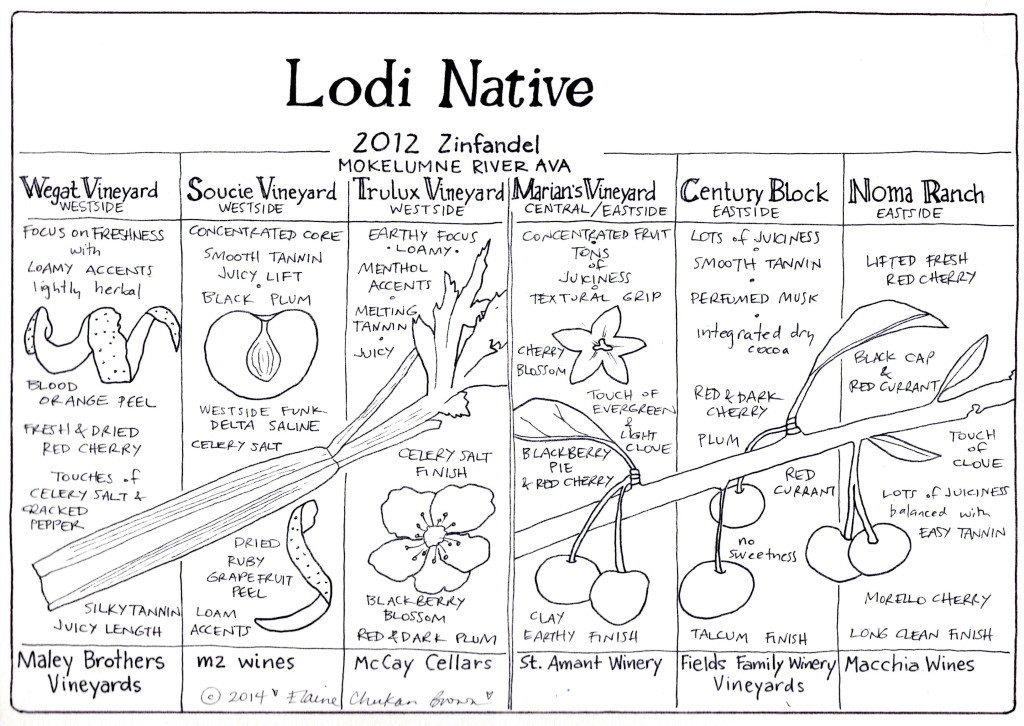 Lodi Native
2012 Zinfandel
MOKELUMNE RIVER AVA
Wegat Vineyard
WESTSIDE
FOCUS on FRESHNESS
with
LOAMY ACCENTS
lightly herbal
BLOOD
ORANGE PEEL
FRESH & DRIED
RED CHERRY
TOUCHES of
CELERY SALT &
CRACKED
PEPPER
SILKY TANNIN
JUICY LENGTH
Maley Brothers
Vineyards
Soucie Vineyard
WESTSIDE
CONCENTRATED CORE
SMOOTH TANNIN
JUICY LIFT
BLACK PLUM
WESTSIDE FUNK
DELTA SALINE
CELERY SALT
DRIED
RUBY
GRAPEFRUIT
PEEL
LOAM
ACCENTS
m2 wines
Trulux Vineyard
WESTSIDE
EARTHY FOCUS
• LOAMY •
MENTHOL
ACCENTS
•
MELTING
TANNIN
•
JUICY
CELERY SALT
FINISH
BLACKBERRY
BLOSSOM
RED & DARK PLUM
McCay Cellars
Marian's Vineyard
CENTRAL/EASTSIDE
CONCENTRATED FRUIT
•
TONS
of
JUICINESS
•
TEXTURAL GRIP
CHERRY
BLOSSOM
TOUCH OF
EVERGREEN
&
LIGHT
CLOVE
BLACKBERRY
PIE
& RED CHERRY
CLAY
EARTHY FINISH
St. Amant Winery
Century Block
EASTSIDE
LOTS of JUICINESS
•
SMOOTH TANNIN
•
PERFUMED MUSK
•
integrated dry
cocoa
RED & DARK
CHERRY
PLUM
RED
CURRANT
no
sweetness
TALCUM FINISH
Fields Family Winery
Vineyards
Noma Ranch
EASTSIDE
LIFTED FRESH
RED CHERRY
BLACK CAP
&
RED CURRANT
TOUCH
OF
CLOVE
LOTS of JUICINESS
balanced with
EASY TANNIN
MORELLO CHERRY
LONG CLEAN FINISH
Macchia Wines
© 2014 ♥ Elaine Chukan Brown ♥